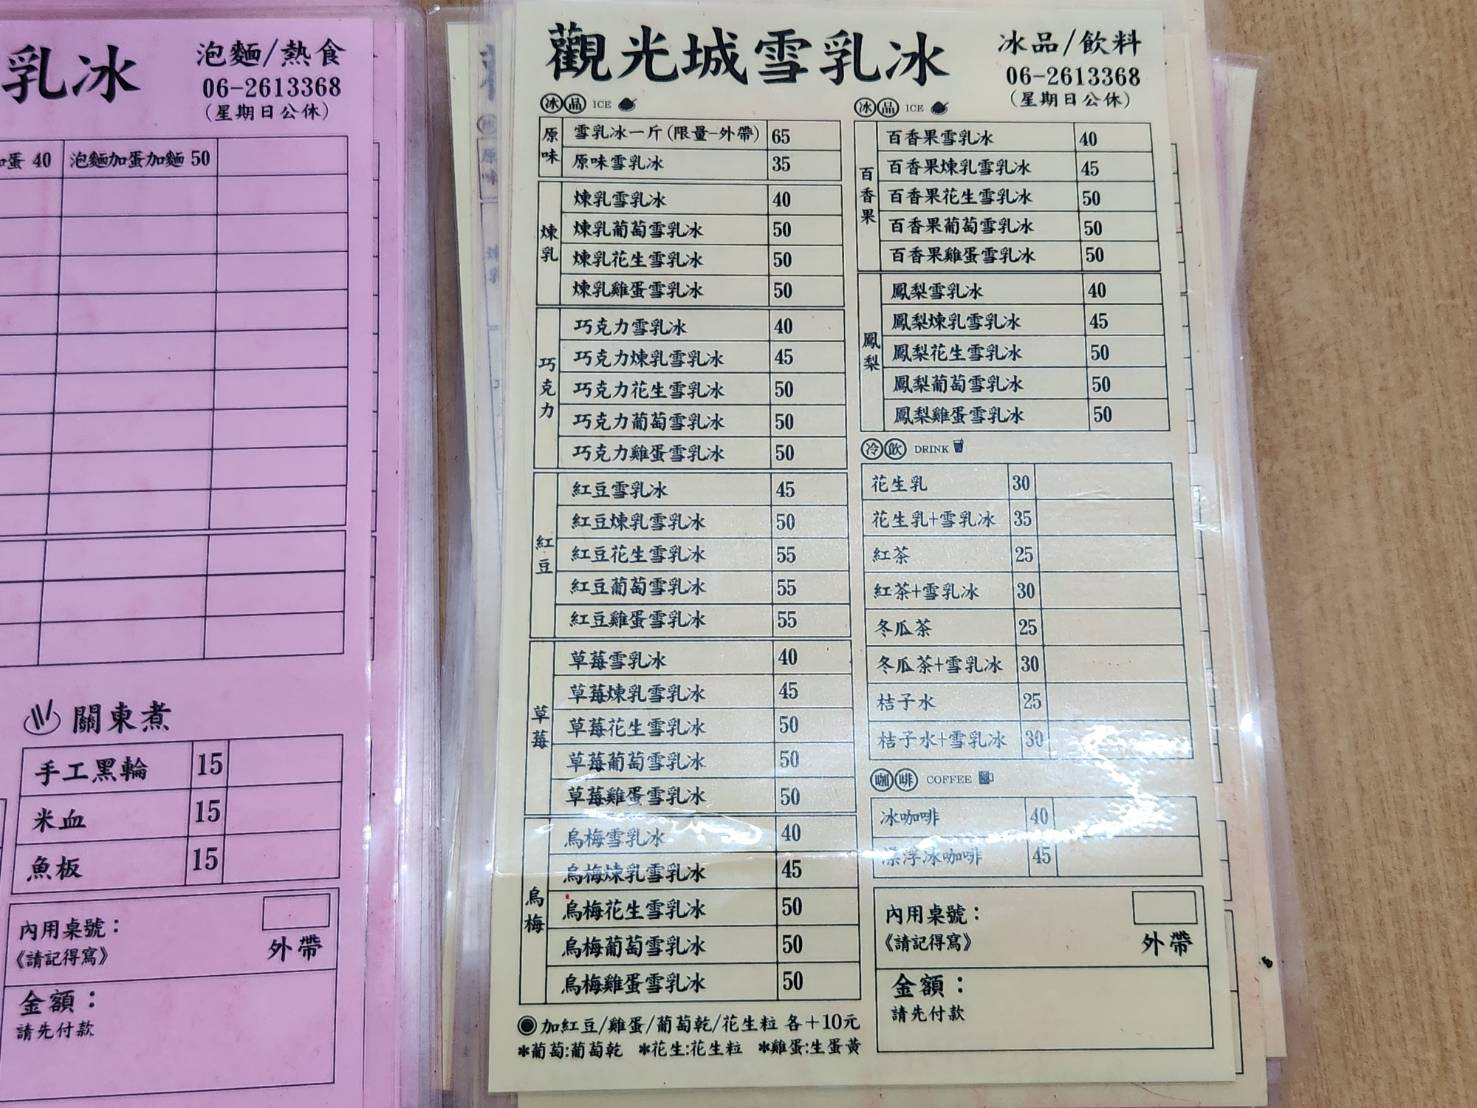 乳冰
泡麵/熱食
06-2613368
(星期日公休)
蛋 40
泡麵加蛋加麵 50
關東煮
手工黑輪 15
米血 15
魚板 15
內用桌號：
《請記得寫》
外帶
金額：
請先付款
觀光城雪乳冰
冰品/飲料
06-2613368
(星期日公休)
冰品 ICE
原味
雪乳冰一斤(限量-外帶) 65
原味雪乳冰 35
煉乳
煉乳雪乳冰 40
煉乳葡萄雪乳冰 50
煉乳花生雪乳冰 50
煉乳雞蛋雪乳冰 50
巧克力
巧克力雪乳冰 40
巧克力煉乳雪乳冰 45
巧克力花生雪乳冰 50
巧克力葡萄雪乳冰 50
巧克力雞蛋雪乳冰 50
紅豆
紅豆雪乳冰 45
紅豆煉乳雪乳冰 50
紅豆花生雪乳冰 55
紅豆葡萄雪乳冰 55
紅豆雞蛋雪乳冰 55
草莓
草莓雪乳冰 40
草莓煉乳雪乳冰 45
草莓花生雪乳冰 50
草莓葡萄雪乳冰 50
草莓雞蛋雪乳冰 50
烏梅
烏梅雪乳冰 40
烏梅煉乳雪乳冰 45
烏梅花生雪乳冰 50
烏梅葡萄雪乳冰 50
烏梅雞蛋雪乳冰 50
◉加紅豆/雞蛋/葡萄乾/花生粒 各+10元
*葡萄:葡萄乾 *花生:花生粒 *雞蛋:生蛋黃
冰品 ICE
百香果
百香果雪乳冰 40
百香果煉乳雪乳冰 45
百香果花生雪乳冰 50
百香果葡萄雪乳冰 50
百香果雞蛋雪乳冰 50
鳳梨
鳳梨雪乳冰 40
鳳梨煉乳雪乳冰 45
鳳梨花生雪乳冰 50
鳳梨葡萄雪乳冰 50
鳳梨雞蛋雪乳冰 50
冷飲 DRINK
花生乳 30
花生乳+雪乳冰 35
紅茶 25
紅茶+雪乳冰 30
冬瓜茶 25
冬瓜茶+雪乳冰 30
桔子水 25
桔子水+雪乳冰 30
咖啡 COFFEE
冰咖啡 40
漂浮冰咖啡 45
內用桌號：
《請記得寫》
外帶
金額：
請先付款